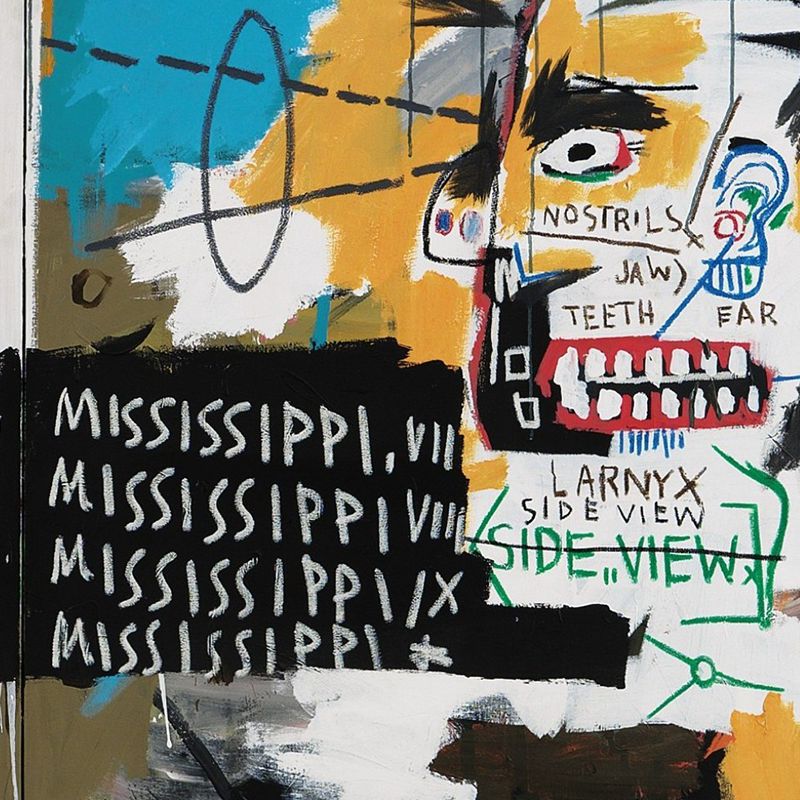 NOSTRILS
JAW)
TEETH
EAR
MISSISSIPPI, VII
MISSISSIPPI VIII
MISSISSIPPI IX
MISSISSIPPI *
LARNYX
SIDE VIEW
SIDE,,VIEW